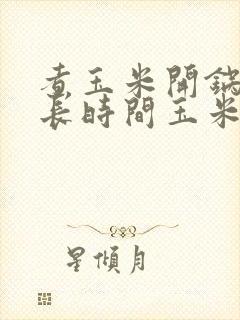 煮玉米開鍋
長時間玉米
星傾月